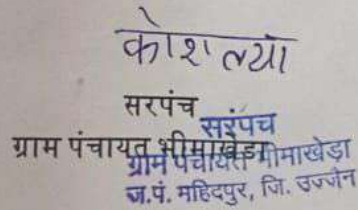 कौशल्या
सरपंच
सरंपच
ग्राम पंचायत भीमाखेडा
ग्राम पंचायत भीमाखेड़ा
ज.पं. महिदपुर, जि. उज्जैन